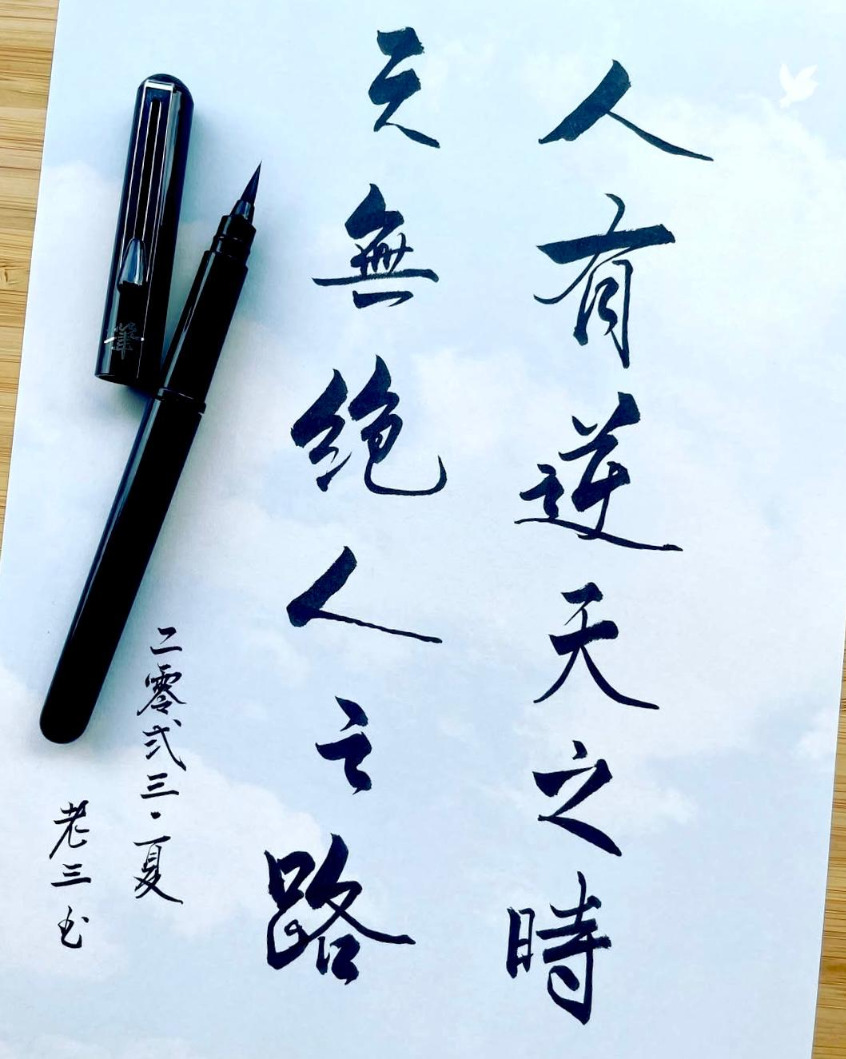 人有逆天之時
天無絕人之路
二零弍三·夏
老三书
筆